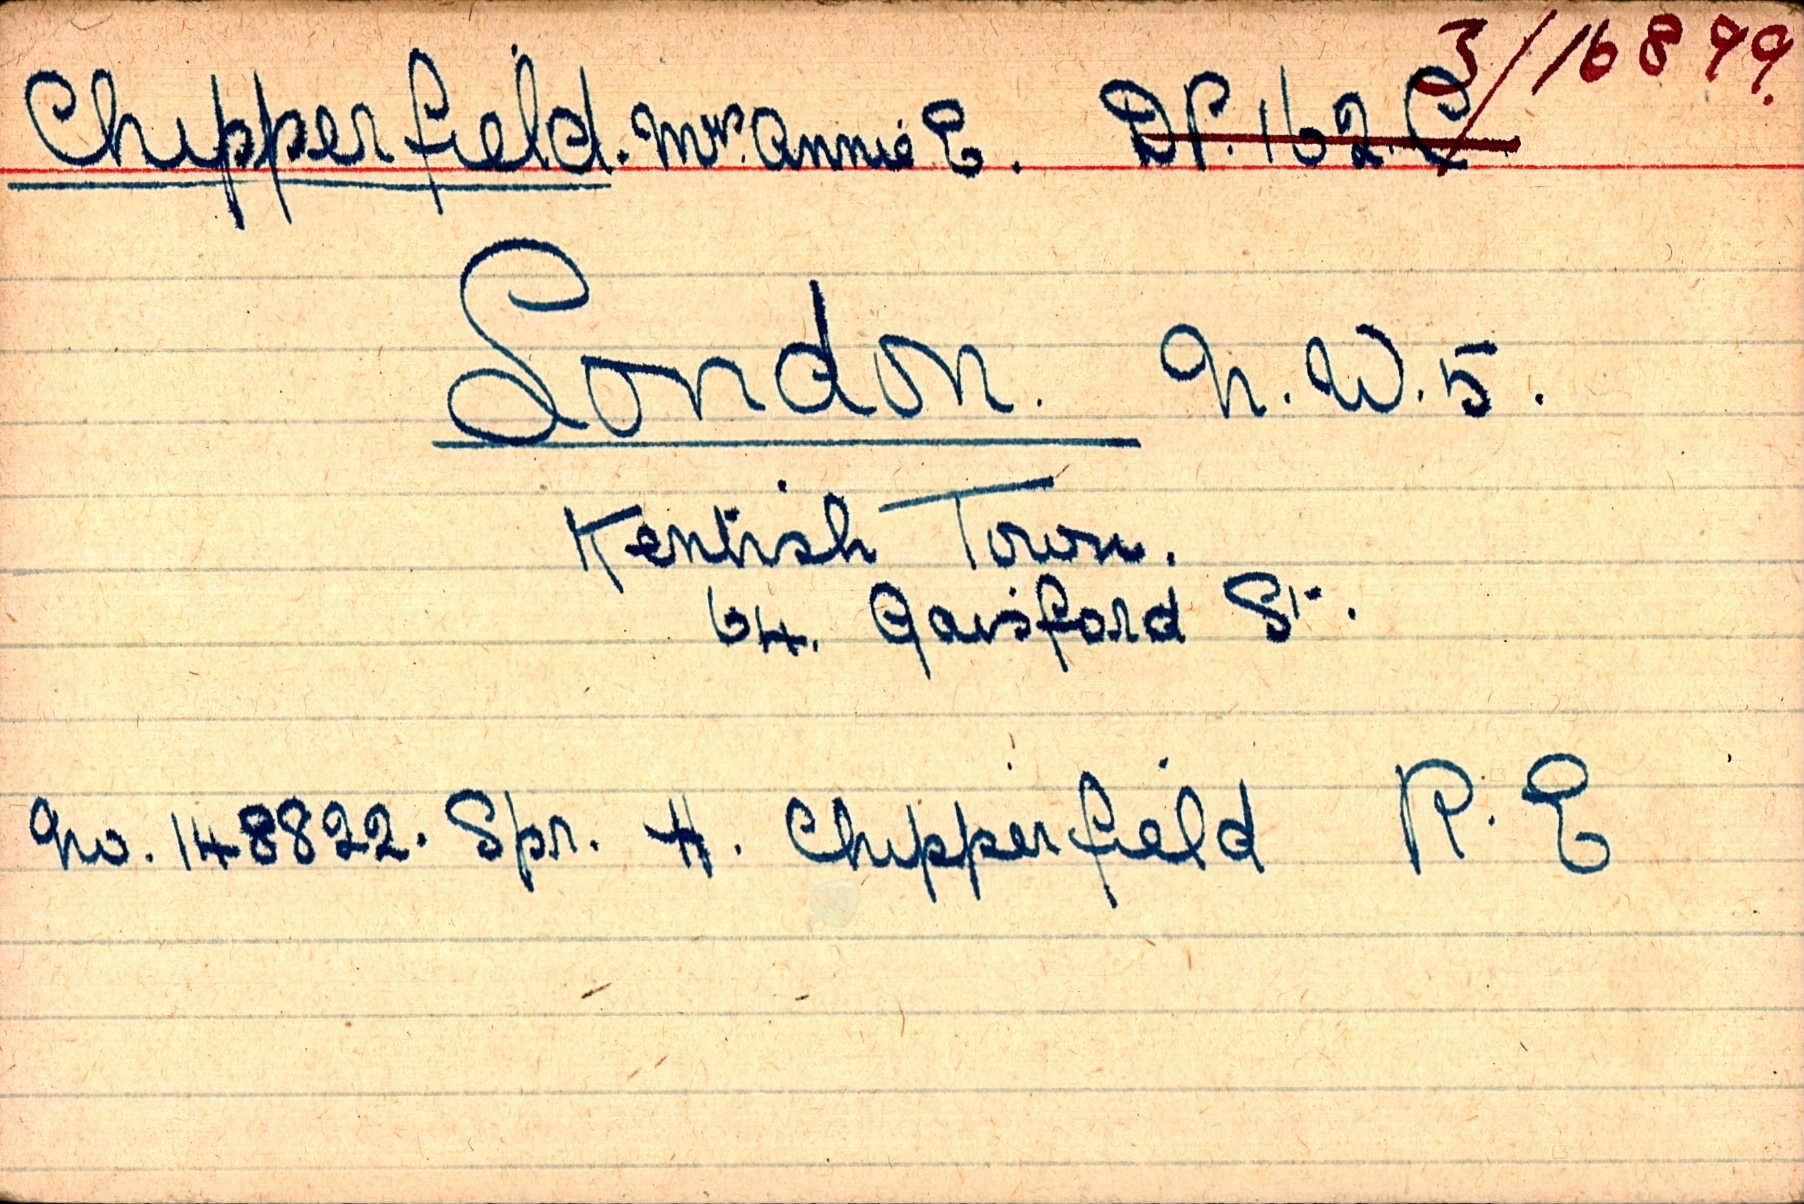 3/16899.
Chipperfield. Mrs. Annie E. DP. 162. C
London. N.W.5.
Kentish Town.
64. Gaisford St.
No. 148822. Spr. H. Chipperfield R.E